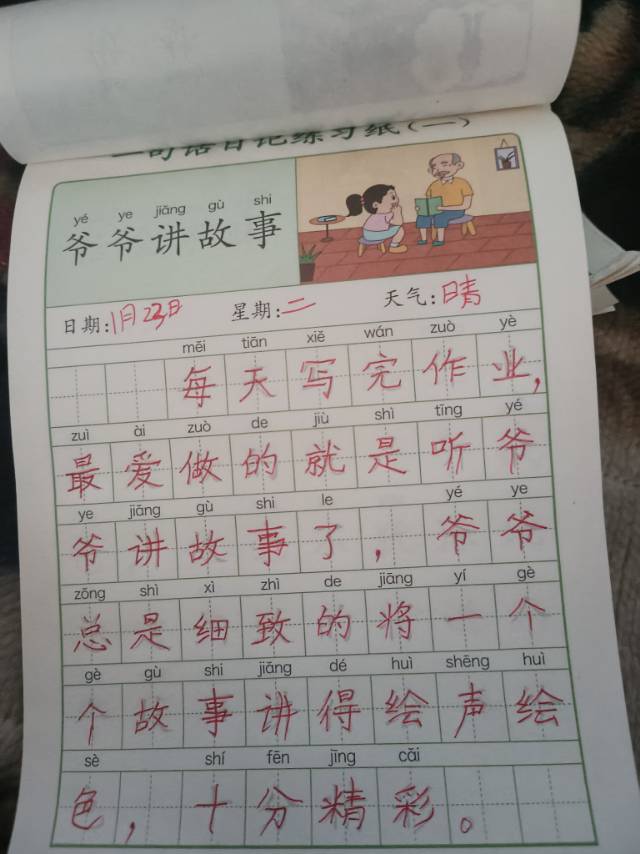 一句话日记练习纸(一)
yé ye jiǎng gù shi
爷爷讲故事
日期:1月23日 星期:二 天气:晴
měi tiān xiě wán zuò yè
每天写完作业,
zuì ài zuò de jiù shì tīng yé
最爱做的就是听爷
ye jiǎng gù shi le yé ye
爷讲故事了,爷爷
zǒng shì xì zhì de jiāng yí gè
总是细致的将一个
gè gù shi jiǎng dé huì shēng huì
个故事讲得绘声绘
sè shí fēn jīng cǎi
色,十分精彩。